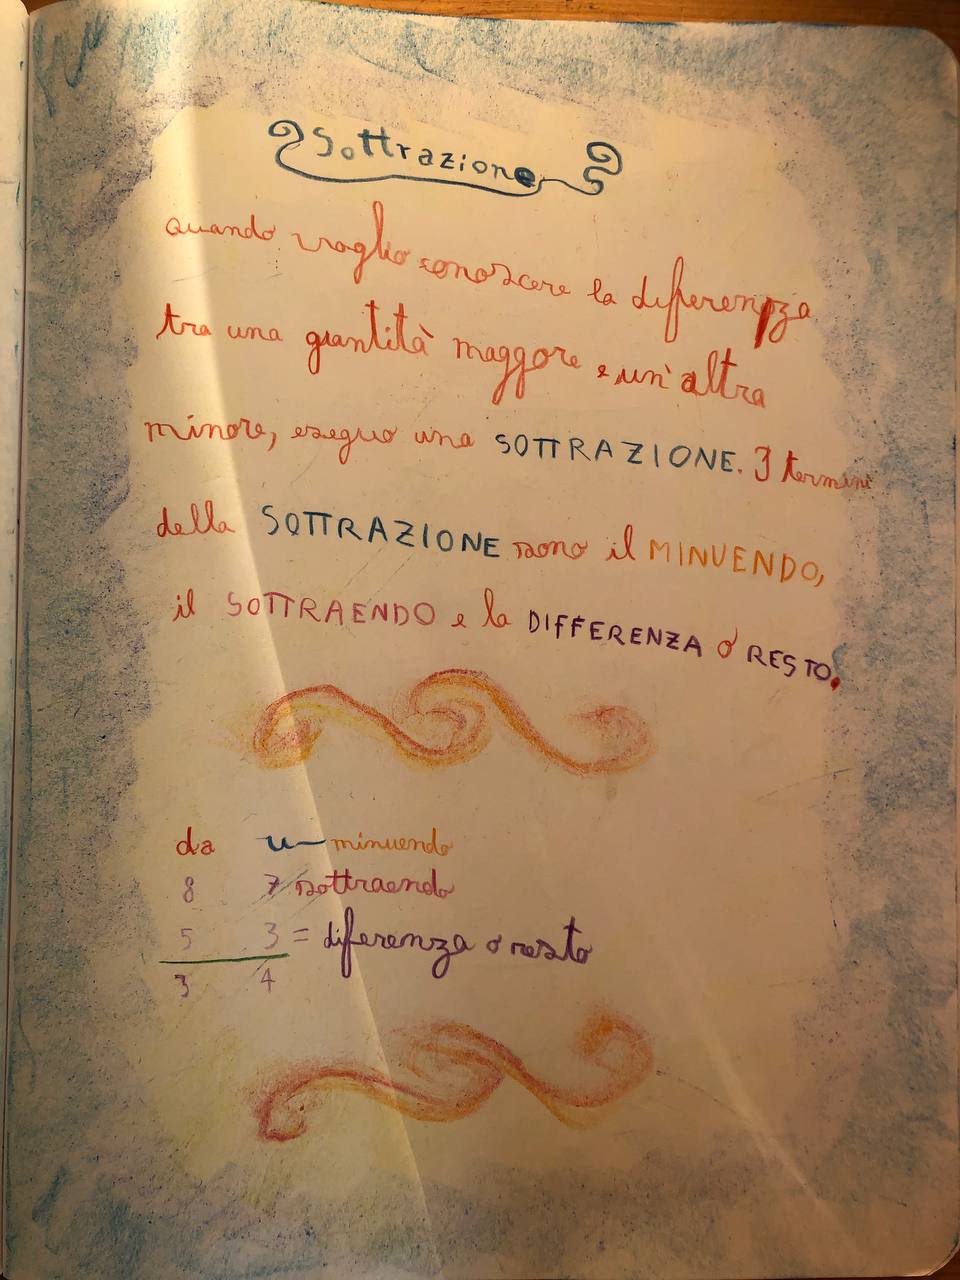 Sottrazione
quando voglio conoscere la diferenza
tra una quantità maggore e un'altra
minore, eseguo una SOTTRAZIONE. I termini
della SOTTRAZIONE sono il MINUENDO,
il SOTTRAENDO e la DIFFERENZA o RESTO.
da u minuendo
8 7 sottraendo
5 3 = diferenza o resto
3 4